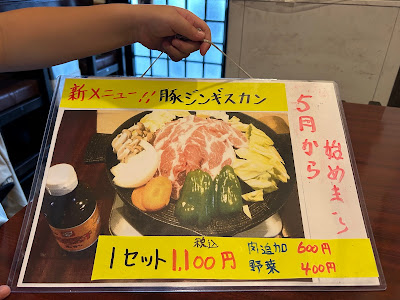 新メニュー!! 豚ジンギスカン
5月から
始めました
税込
1セット 1,100円
肉追加 600円
野菜 400円